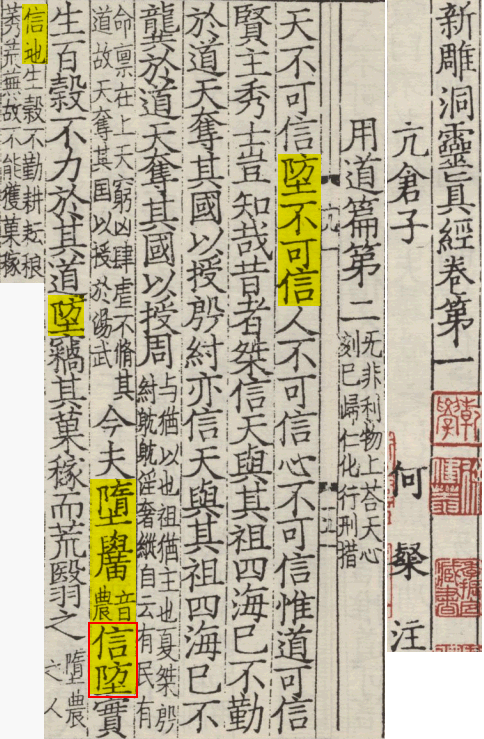 新雕洞靈真經卷第一
亢倉子 何粲 注
用道篇第二
旡非利物上荅天心
刻已歸仁化行刑措
天不可信墬不可信人不可信心不可信惟道可信
賢主秀士豈知哉昔者桀信天與其祖四海已不勤
於道天奪其國以授殷紂亦信天與其祖四海已不
龔於道天奪其國以授周
与猶以也祖猶主也夏桀殷
紂躭躭淫奢縱自云有民有
命禀在上天窮凶肆虐不脩其
道故天奪其囯以授於湯武
今夫墮
音農
信墬實
生百糓不力於其道墬竊其菓稼而荒翳之
墮農
之人
信地生糓不勤耕耘稂
莠荒蕪故不能獲菓稼